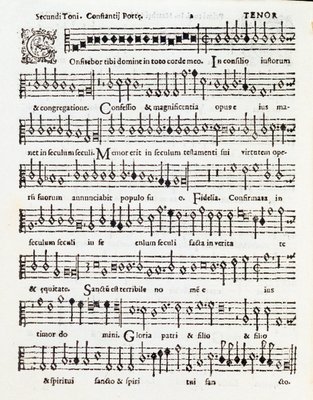 Secundi Toni. Constantij Porte. 2 TENOR
COnfitebor tibi domine in toto corde meo. In consilio iustorum
& congregatione. Confessio & magnificentia opus e ius ma-
net in seculum seculi. Memor erit in seculum testamenti sui virtutem ope-
ris suorum annunciabit populo su o. Fidelia. Confirmata in
seculum seculi in se culum seculi facta in verita te
& equitate. Sanctū & terribile no mē e ius
timor do mini. Gloria patri & filio & filio
& spiritui sancto & spiri tui san cto.